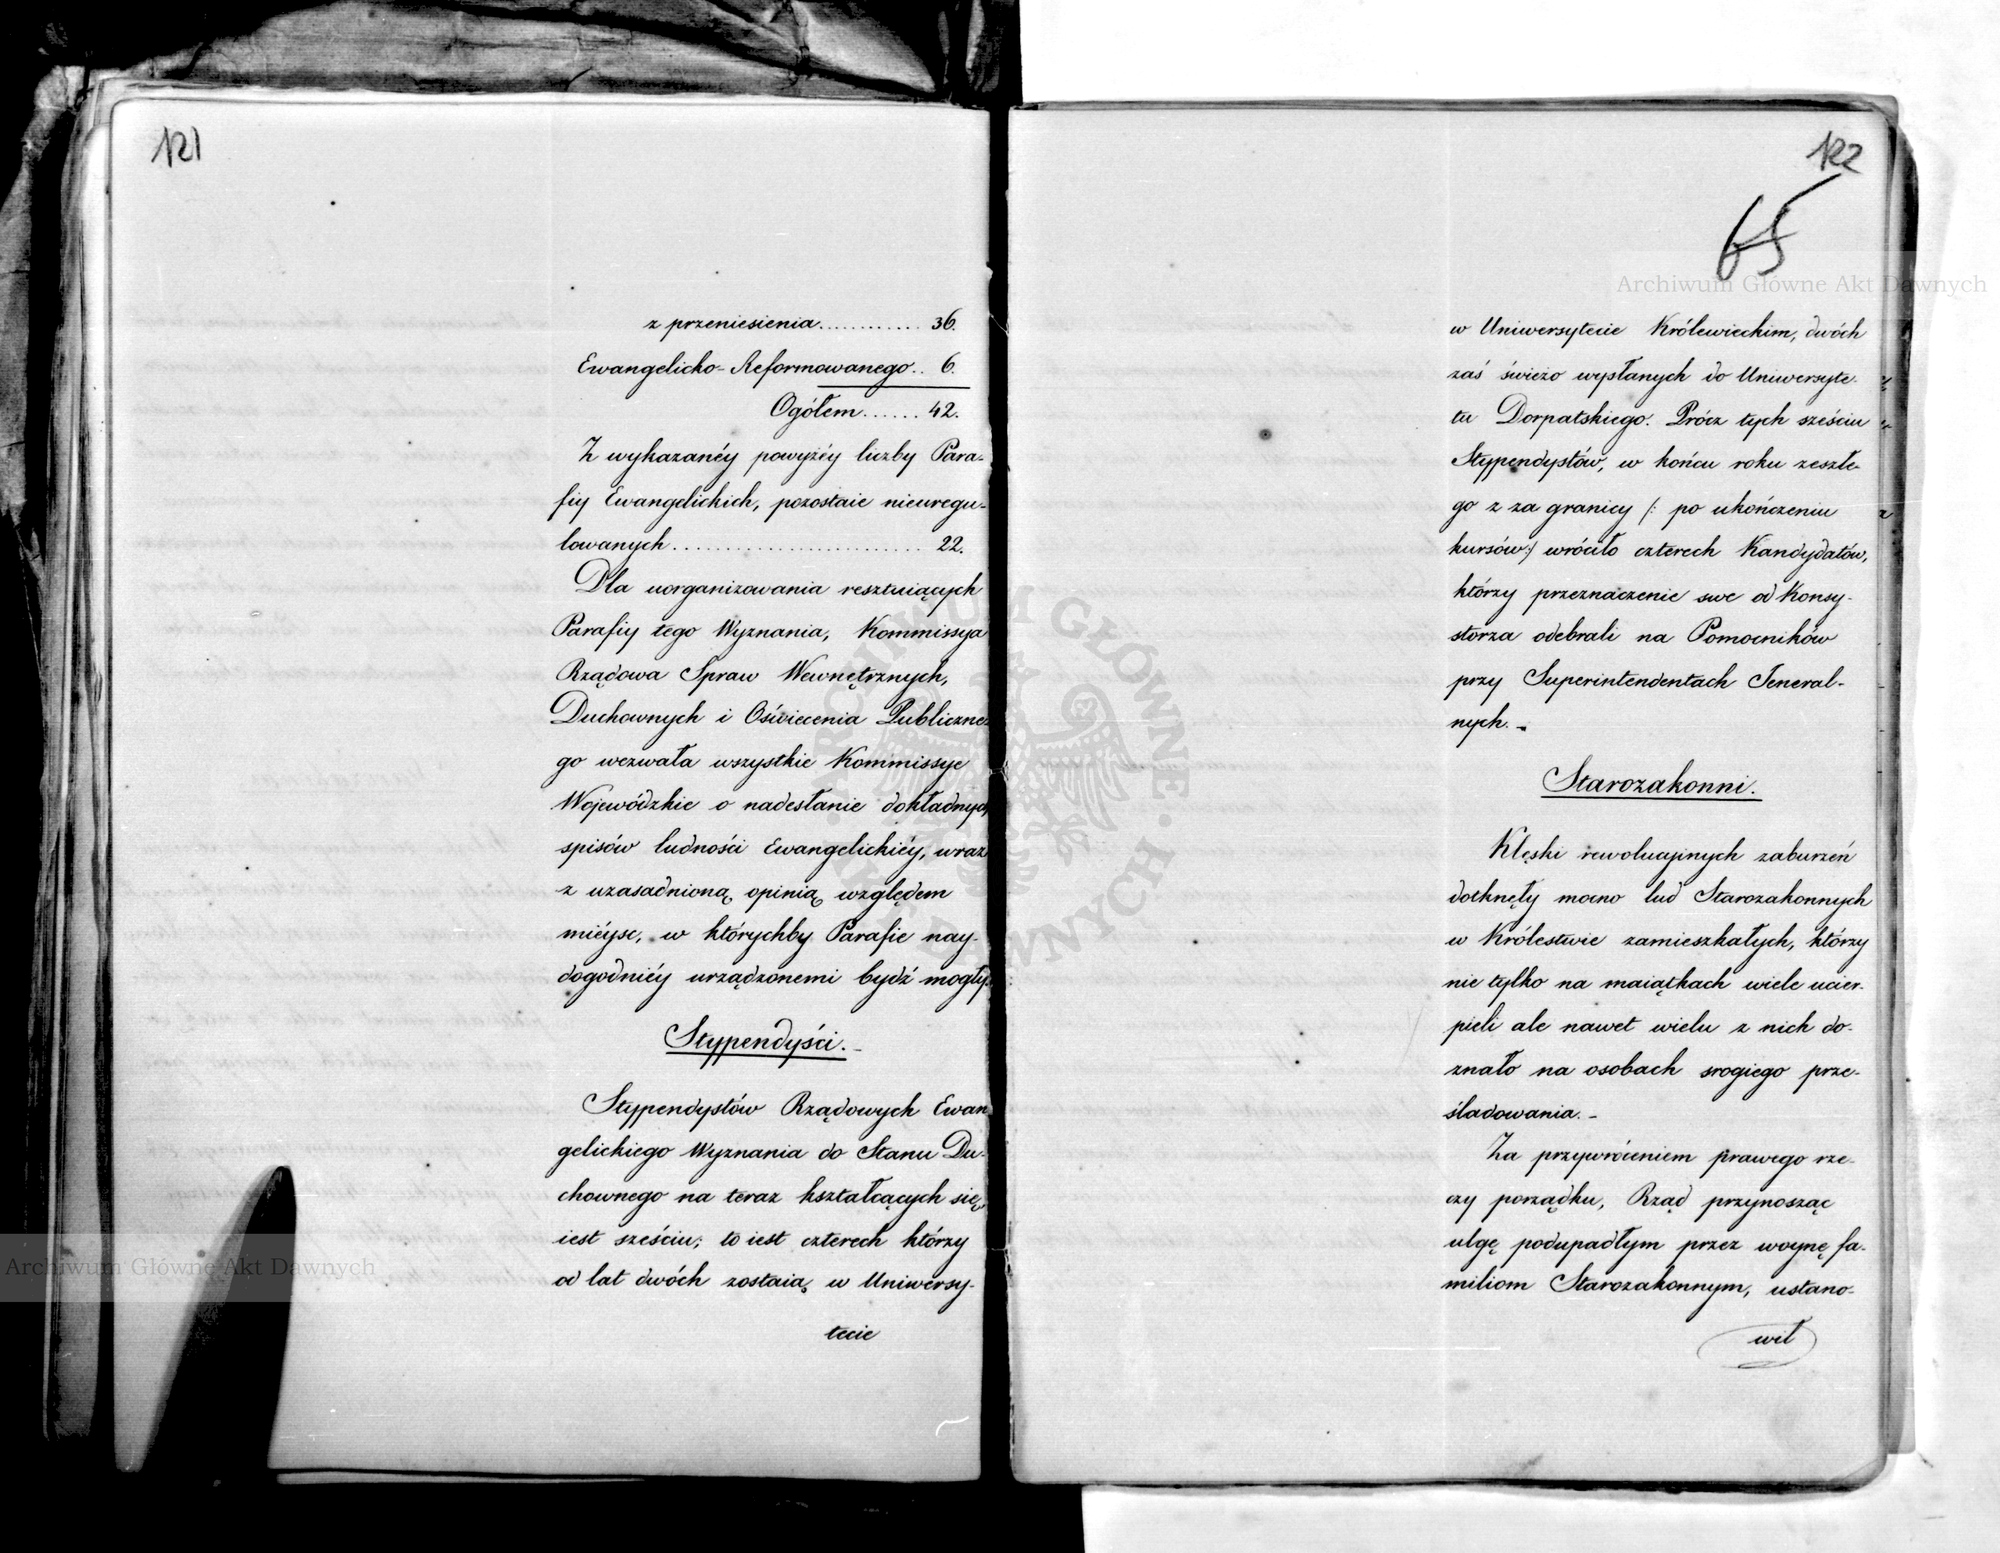 121
z przeniesienia............ 36.
Ewangelicko-Reformowanego.. 6.
Ogółem...... 42.
Z wykazanéy powyżéy liczby Para-
fiy Ewangelickich, pozostaie nieuregu-
lowanych........................ 22.
Dla uorganizowania resztuiących
Parafiy tego Wyznania, Kommissya
Rządowa Spraw Wewnętrznych,
Duchownych i Oświecenia Publiczne-
go wezwała wszystkie Kommissye
Wojewódzkie o nadesłanie dokładnych
spisów ludności Ewangelickiéy, wraz
z uzasadnioną opinią względem
mieysc, w którychby Parafie nay-
dogodniéy urządzonemi bydź mogły.
Stypendyści.-
Stypendystów Rządowych Ewan
gelickiego Wyznania do Stanu Du-
chownego na teraz kształcących się,
iest sześciu; to iest czterech którzy
od lat dwóch zostaią w Uniwersy-
tecie
122
65
w Uniwersytecie Królewieckim, dwóch
zaś świeżo wysłanych do Uniwersyte-
tu Dorpatskiego. Prócz tych sześciu
Stypendystów, w końcu roku zeszłe-
go z za granicy /: po ukończeniu
kursów:/ wróciło czterech Kandydatów,
którzy przeznaczenie swe od Konsy-
storza odebrali na Pomocników
przy Superintendentach Jeneral-
nych.-
Starozakonni.
Klęski rewolucyjnych zaburzeń
dotknęły mocno lud Starozakonnych
w Królestwie zamieszkałych, którzy
nie tylko na maiątkach wiele ucier-
pieli ale nawet wielu z nich do-
znało na osobach srogiego prze-
śladowania.-
Za przywróceniem prawego rze-
czy porządku, Rząd przynosząc
ulgę podupadłym przez woynę fa-
miliom Starozakonnym, ustano-
wił
Archiwum Główne Akt Dawnych
Archiwum Główne Akt Dawnych
ARCHIWUM GŁÓWNE AKT DAWNYCH